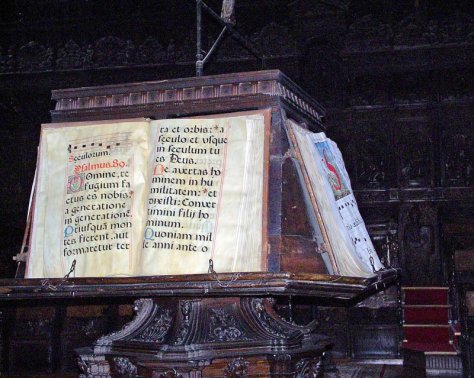 Seculorum.
Psalmus. 89.
Domine, re
fugium fac
tus es nobis:
a generatione
in generatione.
Priusquā mon
tes fierent, aut
formaretur ter
ra et orbis: * a
seculo et usque
in seculum tu
es Deus.
Ne avertas ho
minem in hu
militatem: * et
dixisti: Conver
timini filij ho
minum.
Quoniam mil
le anni ante o